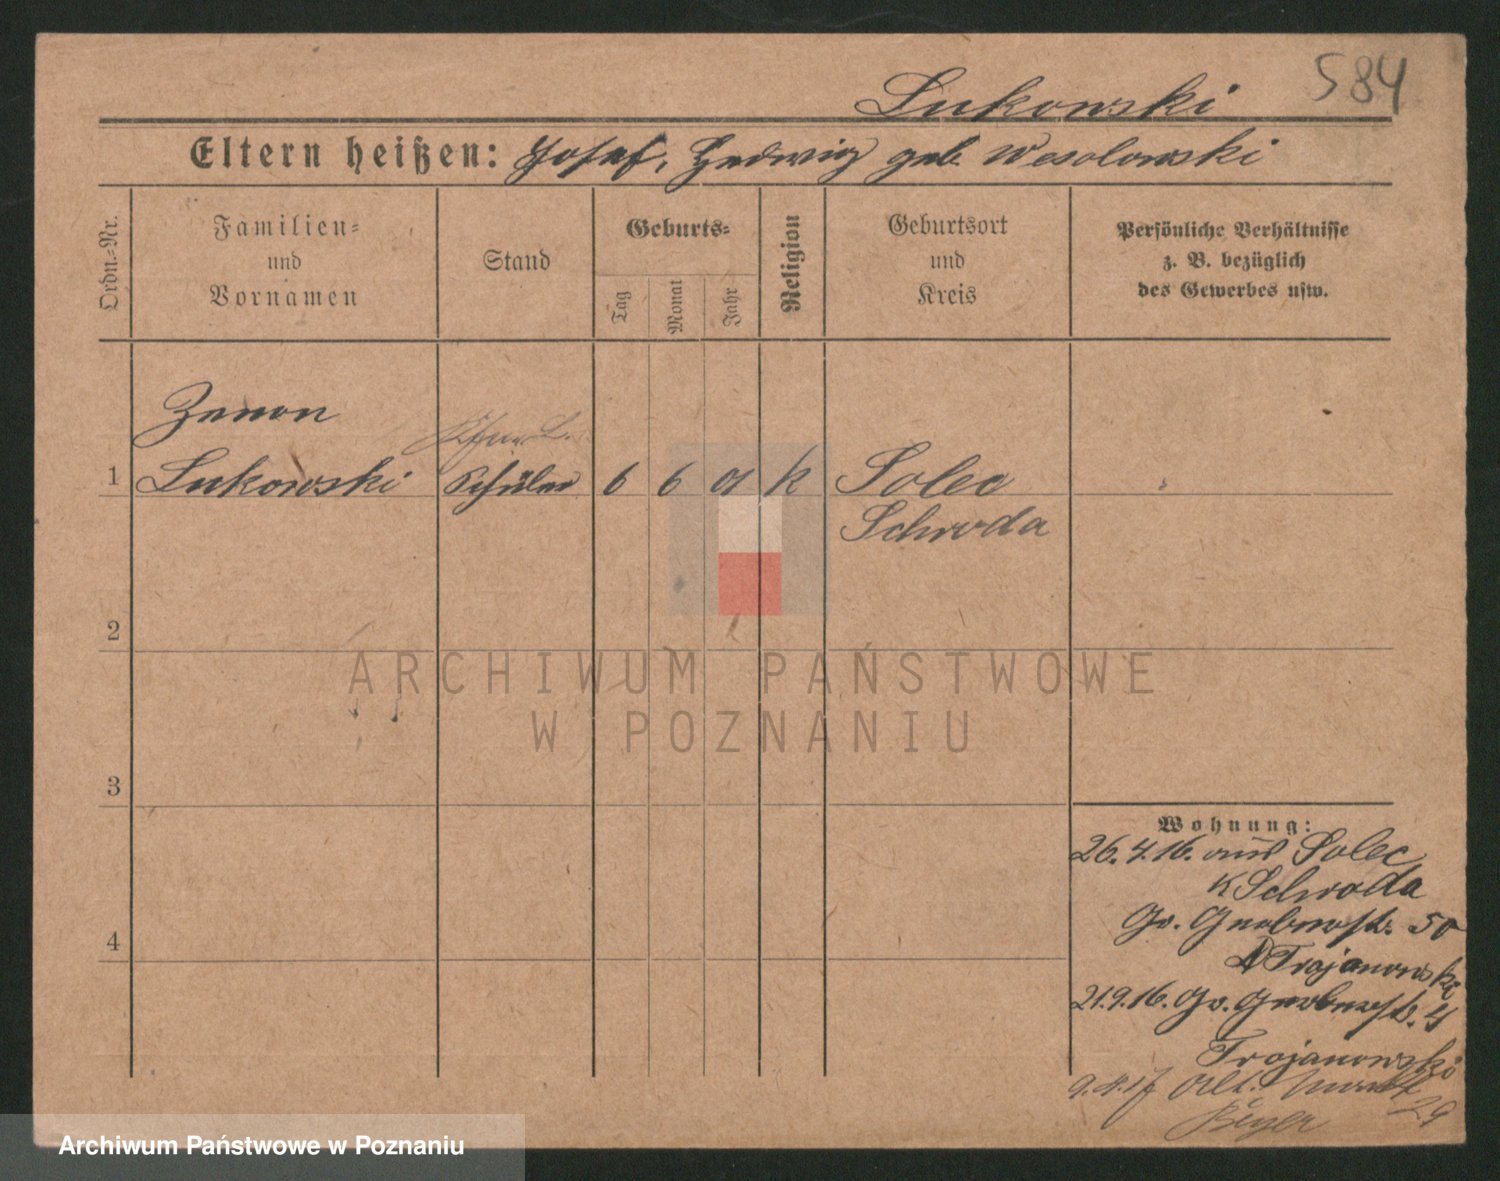 584
Lukowski
Eltern heißen: Josef, Hedwig geb. Wesolowski
Ordn.-Nr.
Familien-
und
Vornamen
Stand
Geburts-
Tag
Monat
Jahr
Religion
Geburtsort
und
Kreis
Persönliche Verhältnisse
z. B. bezüglich
des Gewerbes usw.
Zenon
1 Lukowski Schüler 6 6 01 k Solec
Schroda
2
3
4
Wohnung:
26.4.16. aus Solec
K Schroda
Gr. Gerberstr. 50
Trojanowski
21.9.16. Gr. Gerberstr. 4
Trojanowski
9.4.17 Alt. Markt
29
Beyer
ARCHIWUM PAŃSTWOWE
W POZNANIU
Archiwum Państwowe w Poznaniu